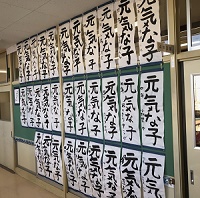 元気な子
元気な子
元気な子
元気な子
元気な子
元気な子
元気な子
元気な子
元気な子
元気な子
元気な子
元気な子
元気な子
元気な子
元気な子
元気な子
元気な子
元気な子
元気な子
元気な子
元気な子
元気な子
元気な子
元気な子
元気な子